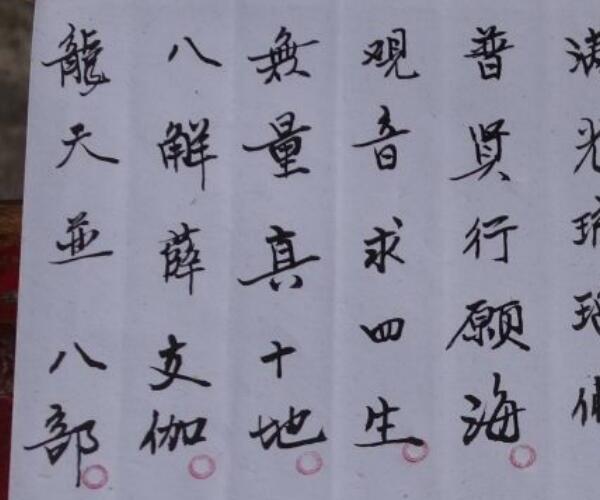 满光琉璃
普贤行願海
观音求四生
無量真十地
八解薛支伽
龍天並八部